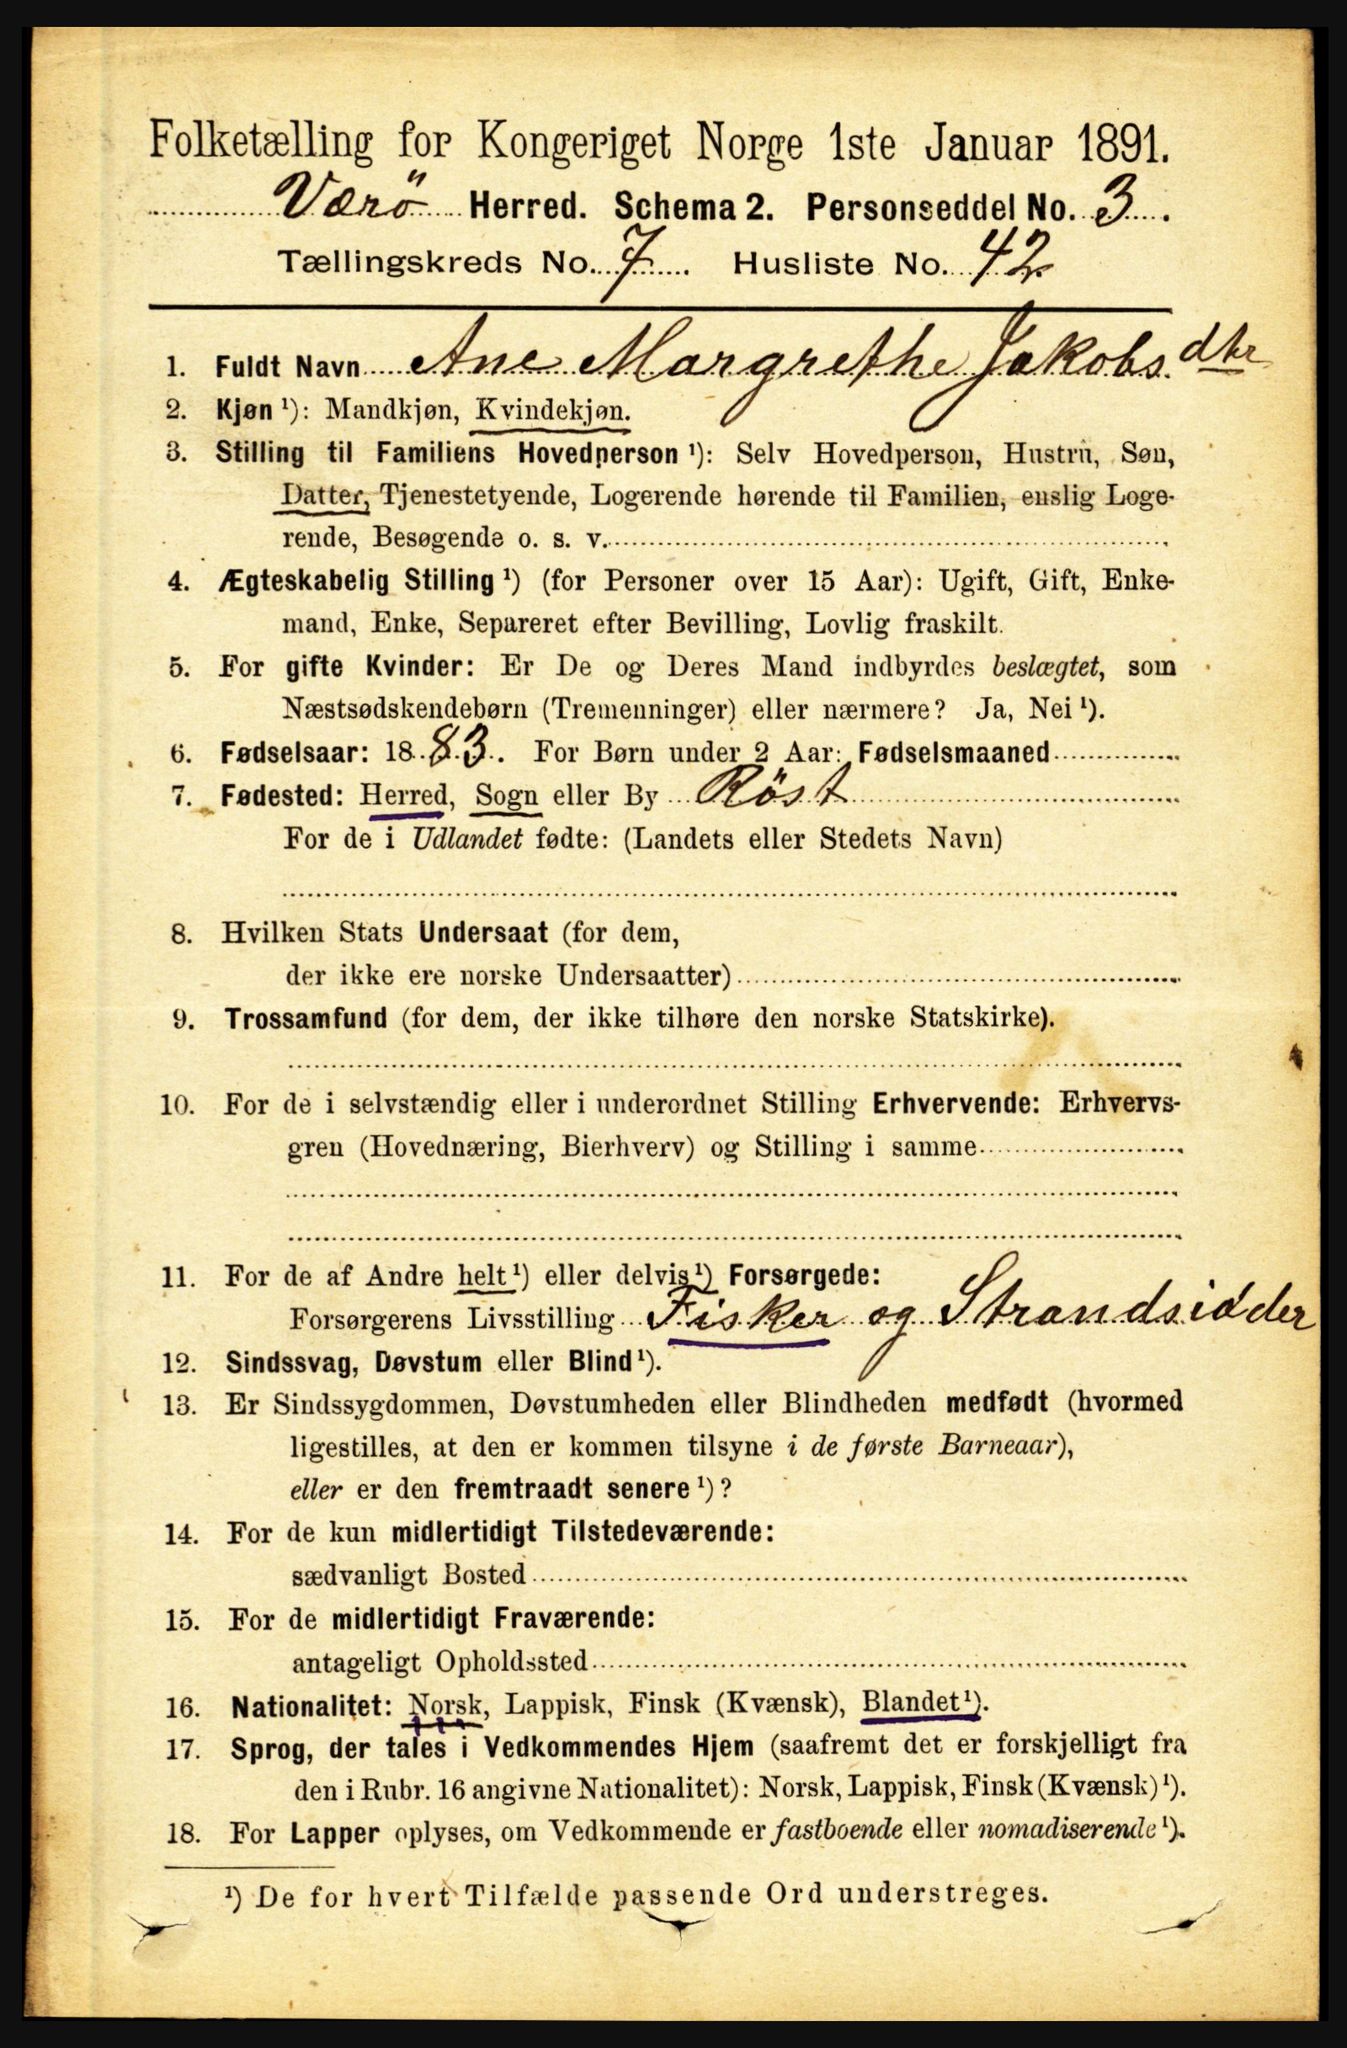 Folketælling for Kongeriget Norge 1ste Januar 1891.
Værö Herred. Schema 2. Personseddel No. 3.
Tællingskreds No. 7. Husliste No. 42
1. Fuldt Navn Ane Margrethe Jakobsdtr
2. Kjøn ¹): Mandkjøn, Kvindekjøn.
3. Stilling til Familiens Hovedperson ¹): Selv Hovedperson, Hustru, Søn,
Datter, Tjenestetyende, Logerende hørende til Familien, enslig Loge-
rende, Besøgende o. s. v.
4. Ægteskabelig Stilling ¹) (for Personer over 15 Aar): Ugift, Gift, Enke-
mand, Enke, Separeret efter Bevilling, Lovlig fraskilt.
5. For gifte Kvinder: Er De og Deres Mand indbyrdes beslægtet, som
Næstsødskendebørn (Tremenninger) eller nærmere? Ja, Nei ¹).
6. Fødselsaar: 1883. For Børn under 2 Aar: Fødselsmaaned
7. Fødested: Herred, Sogn eller By Röst
For de i Udlandet fødte: (Landets eller Stedets Navn)
8. Hvilken Stats Undersaat (for dem,
der ikke ere norske Undersaatter)
9. Trossamfund (for dem, der ikke tilhøre den norske Statskirke).
10. For de i selvstændig eller i underordnet Stilling Erhvervende: Erhvervs-
gren (Hovednæring, Bierhverv) og Stilling i samme
11. For de af Andre helt ¹) eller delvis ¹) Forsørgede:
Forsørgerens Livsstilling Fisker og Strandsidder
12. Sindssvag, Døvstum eller Blind ¹).
13. Er Sindssygdommen, Døvstumheden eller Blindheden medfødt (hvormed
ligestilles, at den er kommen tilsyne i de første Barneaar),
eller er den fremtraadt senere ¹)?
14. For de kun midlertidigt Tilstedeværende:
sædvanligt Bosted
15. For de midlertidigt Fraværende:
antageligt Opholdssted
16. Nationalitet: Norsk, Lappisk, Finsk (Kvænsk), Blandet ¹).
17. Sprog, der tales i Vedkommendes Hjem (saafremt det er forskjelligt fra
den i Rubr. 16 angivne Nationalitet): Norsk, Lappisk, Finsk (Kvænsk) ¹).
18. For Lapper oplyses, om Vedkommende er fastboende eller nomadiserende ¹).
¹) De for hvert Tilfælde passende Ord understreges.